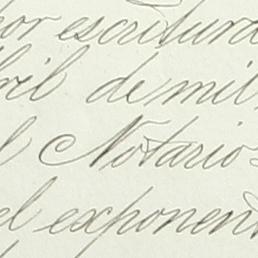 por escritura
bril de mil
l Notario
el exponent